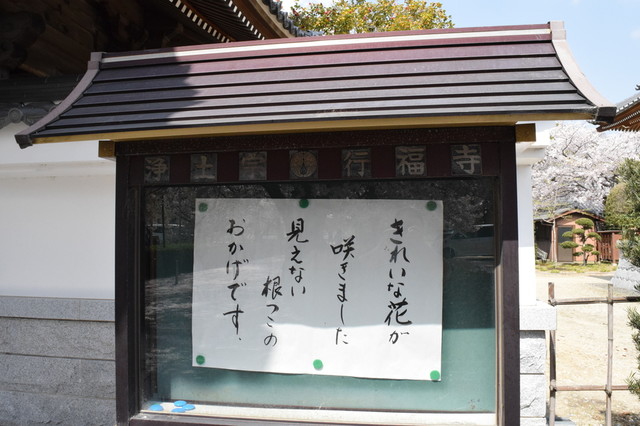 浄土宗 行福寺
きれいな花が
咲きました
見えない
根っこの
おかげです、